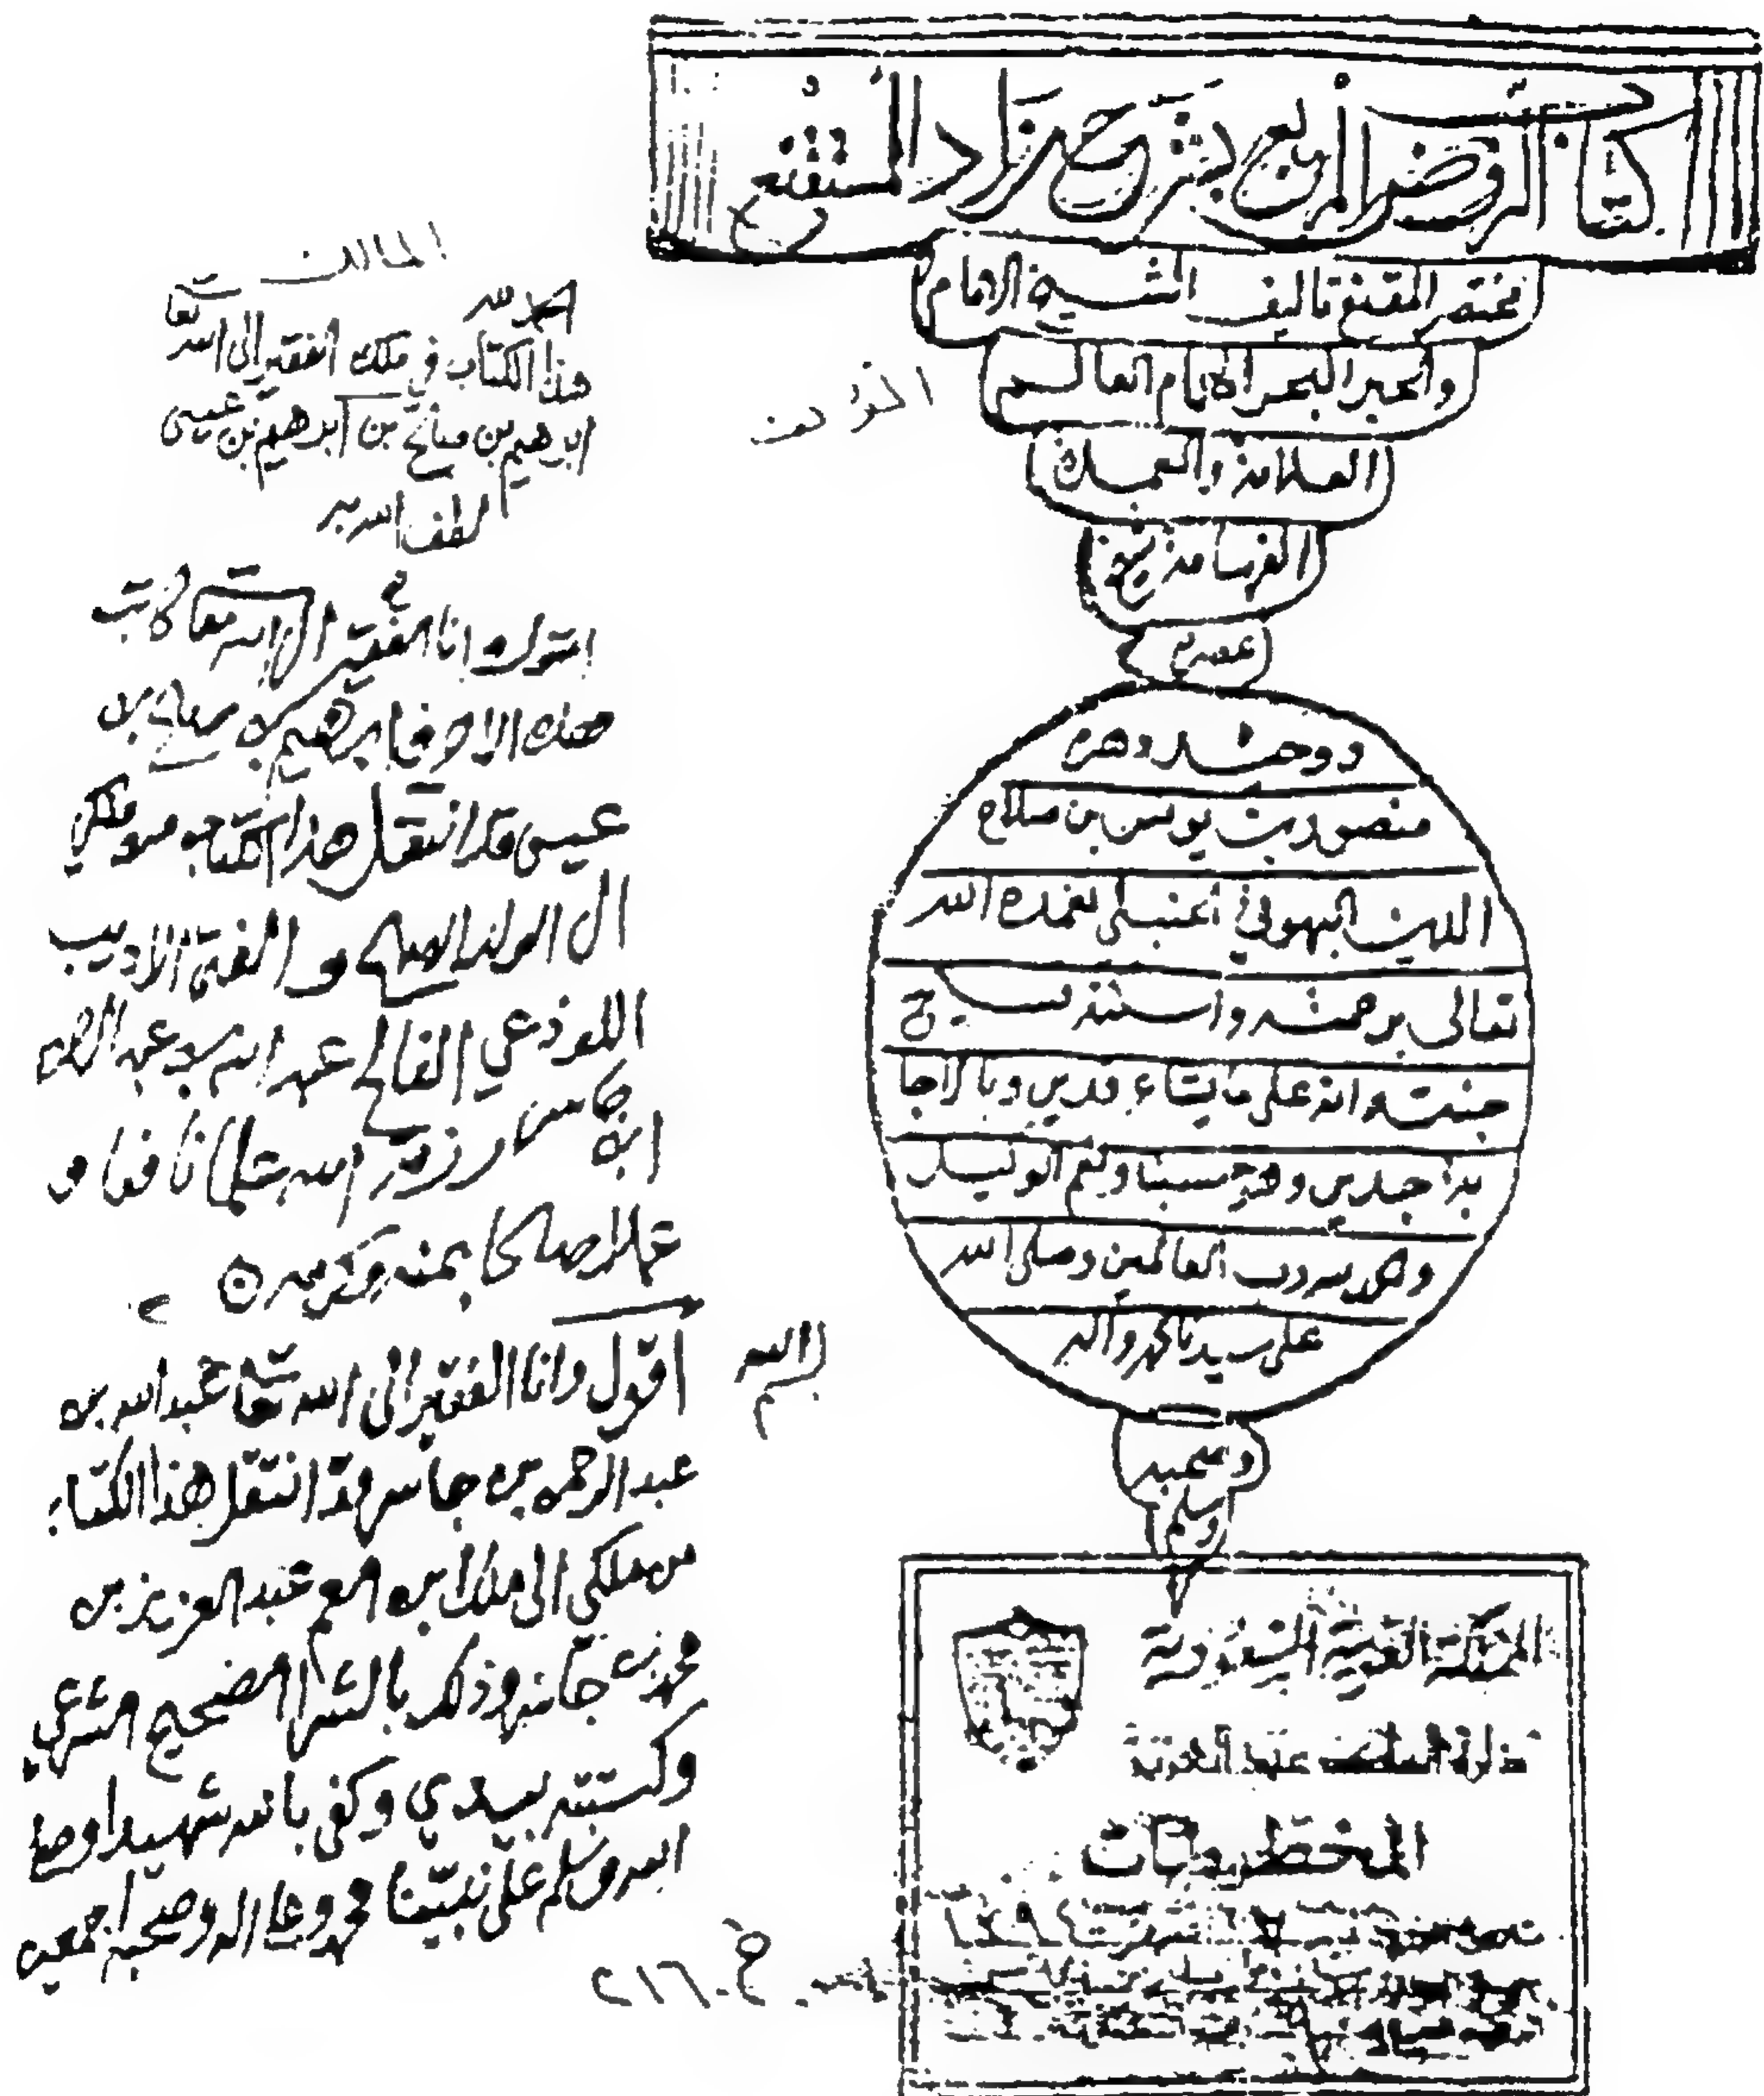 كتاب الروض المربع بشرح زاد المستقنع
مختصر المقنع تاليف الشيخ الامام
والحبر البحر الامام العالم
العلامة والعمدة
الفهامة شيخ
عصره
ووحيد دهره
منصور بن يونس بن صلاح
الدين البهوتي الحنبلي تغمده الله
تعالى برحمته واسكنه فسيح
جنته انه على ما يشاء قدير وبالاجا
بة جدير وهو حسبنا ونعم الوكيل
والحمد لله رب العالمين وصلى الله
على سيدنا محمد واله
وصحبه
وسلم
المملكة العربية السعودية
المخطوطات
خ. ٢١٦
الحمد لله
هذا الكتاب في ملك الفقير الى الله تعا
ابرهيم بن صالح بن ابرهيم بن عيسى
لطف الله به
اقول وانا الفقير الى الله تعا كاتب
هذه الاحرف ابرهيم بن صالح بن
عيسى قد انتقل هذا الكتاب من ملكي
الى الولد الصالح و الفتى الاديب
اللوذعي الفالح عبد الله بن عبد الرحمن
ابن جاسر رزقه الله علما نافعا و
عملا صالحا بمنه وكرمه
اقول وانا الفقير الى الله تعا عبد الله بن
عبد الرحمن بن جاسر قد انتقل هذا الكتاب
من ملكي الى ملك ابن العم عبد العزيز بن
محمد بن جاسر وذلك بالشرا الصحيح الشرعي
وكتبته بيدي وكفى بالله شهيدا وصلى
الله وسلم على نبينا محمد وعلى اله وصحبه اجمعين